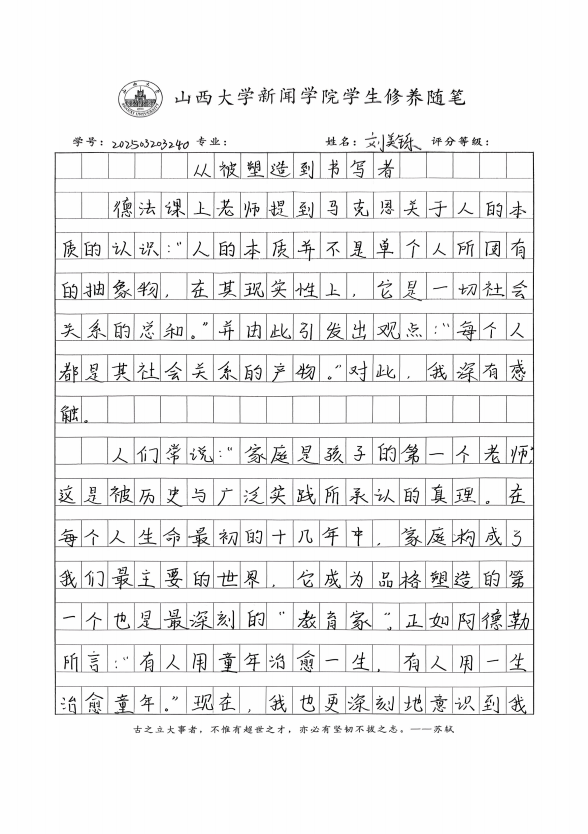 山西大学新闻学院学生修养随笔
学号：202503203240 专业： 姓名：刘美铄 评分等级：
从被塑造到书写者
德法课上老师提到马克思关于人的本
质的认识：“人的本质并不是单个人所固有
的抽象物，在其现实性上，它是一切社会
关系的总和。”并由此引发出观点：“每个人
都是其社会关系的产物。”对此，我深有感
触。
人们常说：“家庭是孩子的第一个老师”，
这是被历史与广泛实践所承认的真理。在
每个人生命最初的十几年中，家庭构成了
我们最主要的世界，它成为品格塑造的第
一个也是最深刻的“教育家”。正如阿德勒
所言：“有人用童年治愈一生，有人用一生
治愈童年。”现在，我也更深刻地意识到我
古之立大事者，不惟有超世之才，亦必有坚韧不拔之志。——苏轼